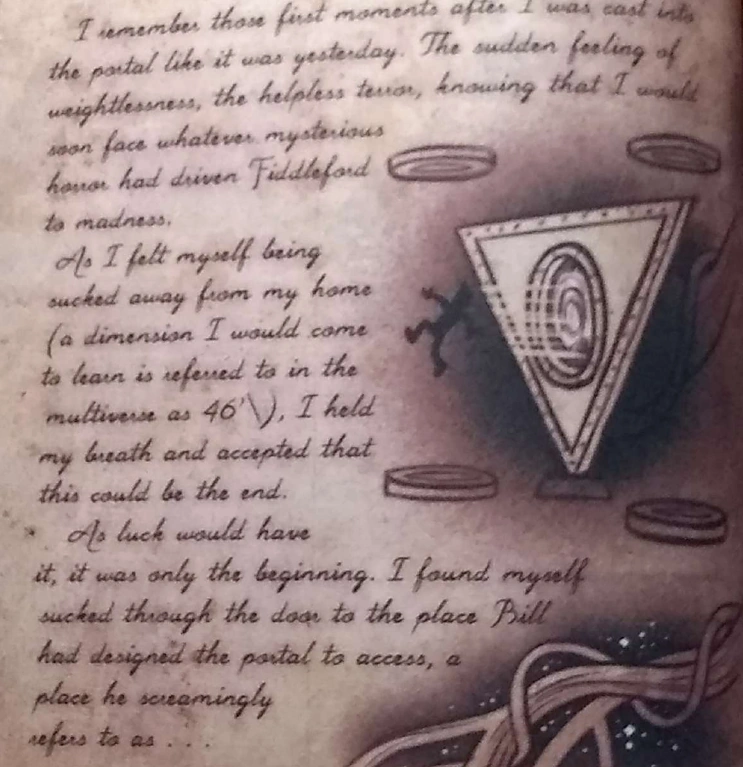 I remember those first moments after I was cast into
the portal like it was yesterday. The sudden feeling of
weightlessness, the helpless terror, knowing that I would
soon face whatever mysterious
horror had driven Fiddleford
to madness.
As I felt myself being
sucked away from my home
(a dimension I would come
to learn is referred to in the
multiverse as 46'\), I held
my breath and accepted that
this could be the end.
As luck would have
it, it was only the beginning. I found myself
sucked through the door to the place Bill
had designed the portal to access, a
place he screamingly
refers to as . . .